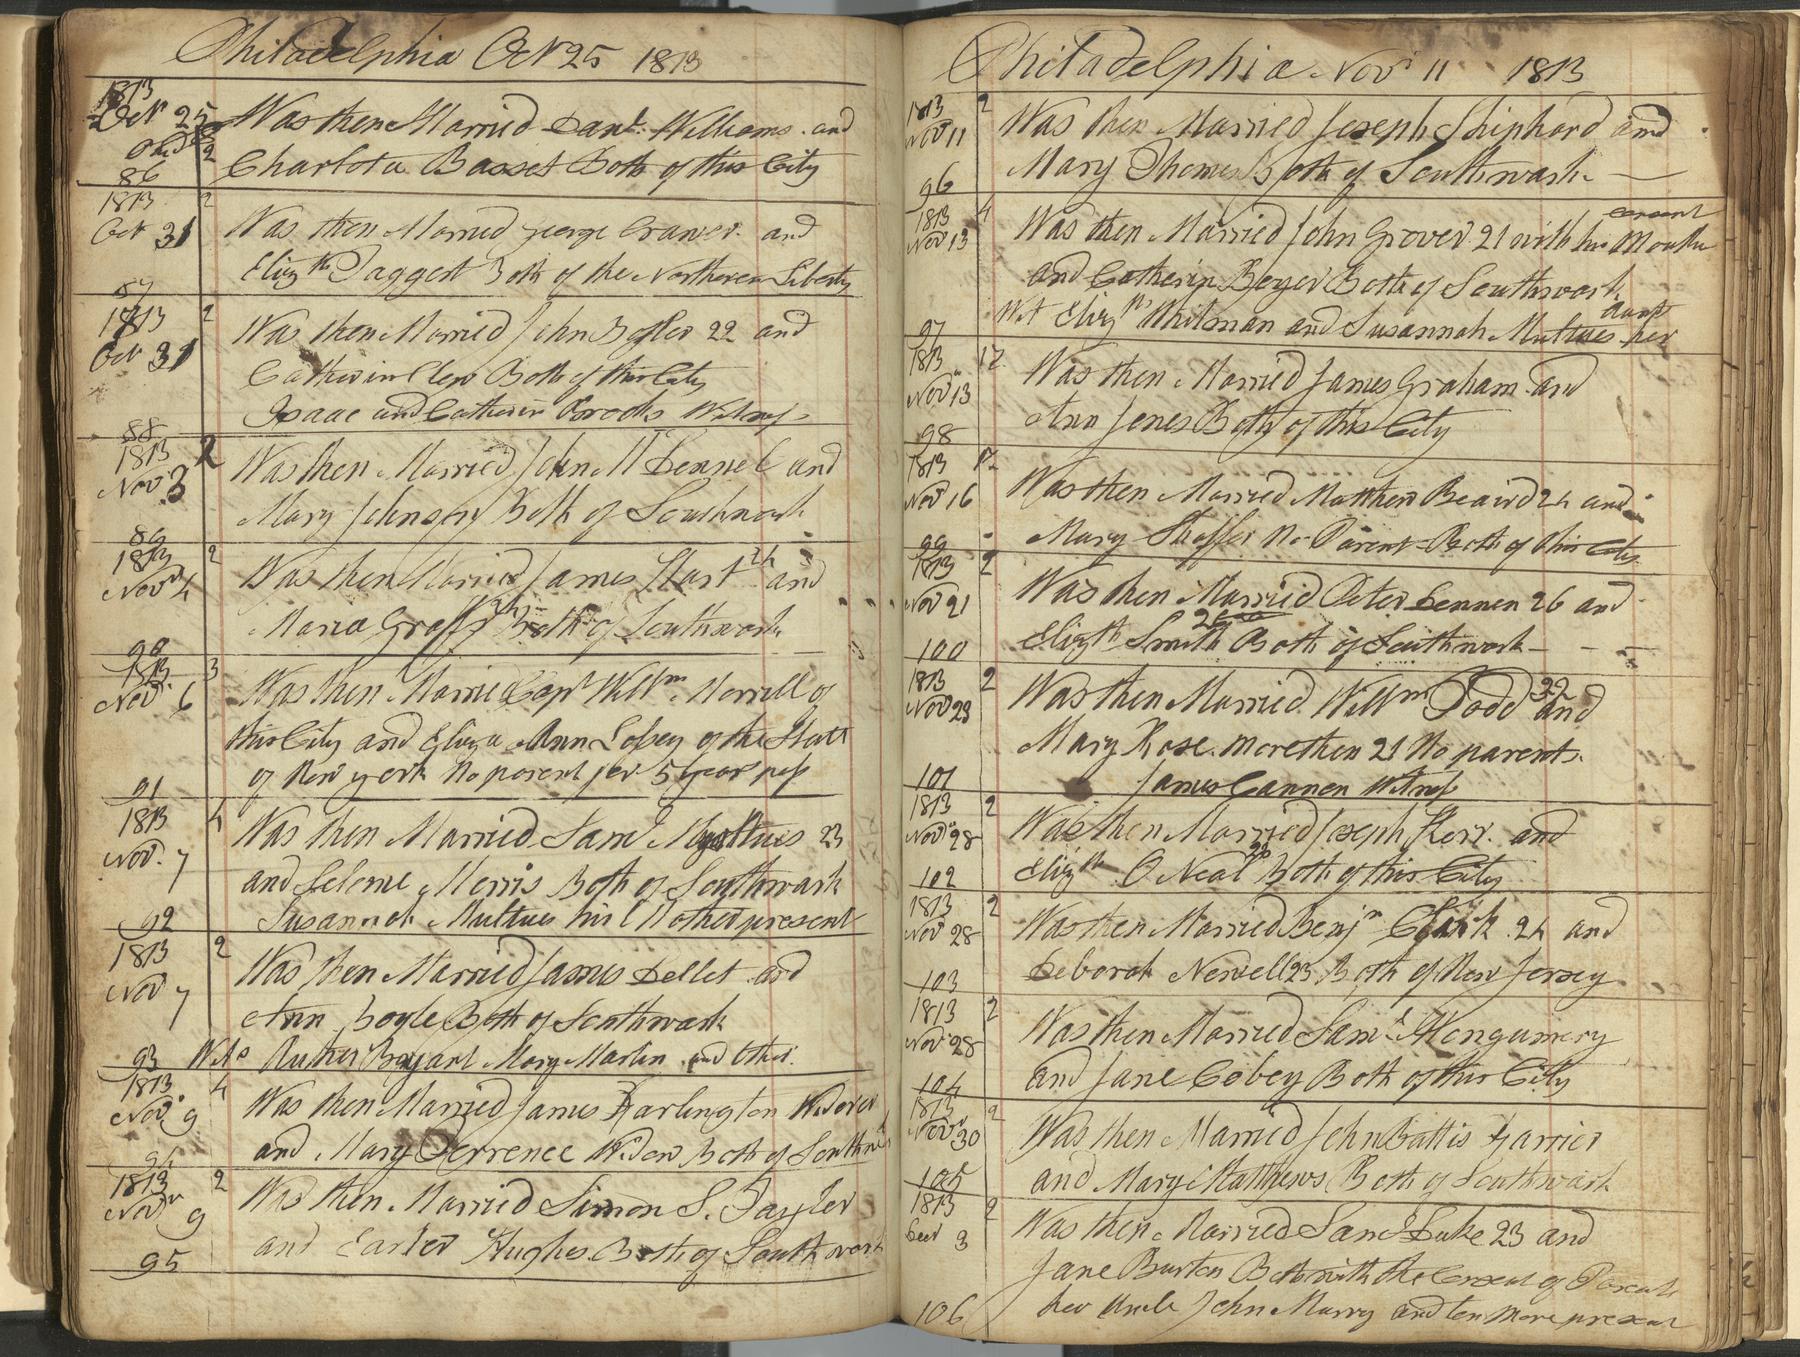 Philadelphia Oct 25 1813
1813
Oct 25 Was then Married Danl. Williams and
2
86 Charlota Basset Both of this City
1813 2
Oct 31 Was then Married George Craner and
87 Elizth Daggett Both of the Northeren Liberty
1813 2
Oct 31 Was then Married John Botler 22 and
Catherin Clew Both of this City
88 Isaac and Catherin Brooks Witness
1813 2
Nov 3 Was then Married John McDennel and
89 Mary Johnson Both of Southwark
1813 2
Novr 4 Was then Married James Hart 24 and
90 Maria Graff 24 Both of Southwark
1813 3
Novr 6 Was then Married Capt Willm. Morrell of
this City and Eliza Ann Losey of the State
91 of New york No parent for 5 year pass
1813 4
Nov. 7 Was then Married Saml Matthues 23
and Seleme Merris Both of Southwark
92 Susannah Multues his Mother present
1813 2
Nov 7 Was then Married James Dellet and
Ann Boyle Both of Southwark
93 Wits Bryant Mary Martin and Other
1813 4
Novr 9 Was then Married James Harlington Widover
94 and Mary Derrence Widow Both of Southwark
1813 2
Novr 9 Was then Married Simon S. Tayler
95 and Easter Hughes Both of Southwark
Philadelphia Novr 11 1813
1813 2
Nov 11 Was then Married Joseph Shiphard and
96 Mary Thomas Both of Southwark
1813 4
Nov 13 Was then Married John Grover 21 with his Mouther consent
and Catherin Boyer Both of Southwark
97 Wit Elizth Whitman and Susannah Multues her Aunt
1813 12
Nov 13 Was then Married James Graham and
98 Ann Jones Both of this City
1813 12
Nov 16 Was then Married Matthew Beaird 24 and
99 Mary Shaffer No Parent Both of this City
1813 2
Nov 21 Was then Married Peter Dennen 26 and
100 Elizth Smith 26 Both of Southwark
1813 2
Nov 23 Was then Married Willm Todd 32 and
Mary Rose. more then 21 No parents.
101 James Cannen Witness
1813 2
Novr 28 Was then Married Joseph Kerr. and
102 Elizth O Neal 20 Both of this City
1813 2
Novr 28 Was then Married Benjn Clark 24 and
103 Deborah Newell 23 Both of New Jersey
1813 2
Novr 28 Was then Married Saml Mongumery
104 and Jane Cobey Both of this City
1813 2
Novr 30 Was then Married John Battis Harrier
105 and Mary Matthews Both of Southwark
1813 2
Decr 3 Was then Married Saml Duke 23 and
Jane Burton Both with the Consent of Parents
106 her Uncle John Murry and ten more present